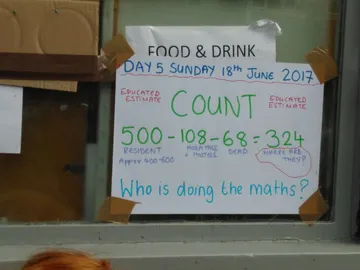 FOOD & DRINK
DAY 5 SUNDAY 18th JUNE 2017
EDUCATED ESTIMATE
COUNT
EDUCATED ESTIMATE
500 - 108 - 68 = 324
RESIDENT
Approx 400-600
HOSPITALS
DEAD
WHERE ARE THEY?
Who is doing the maths?